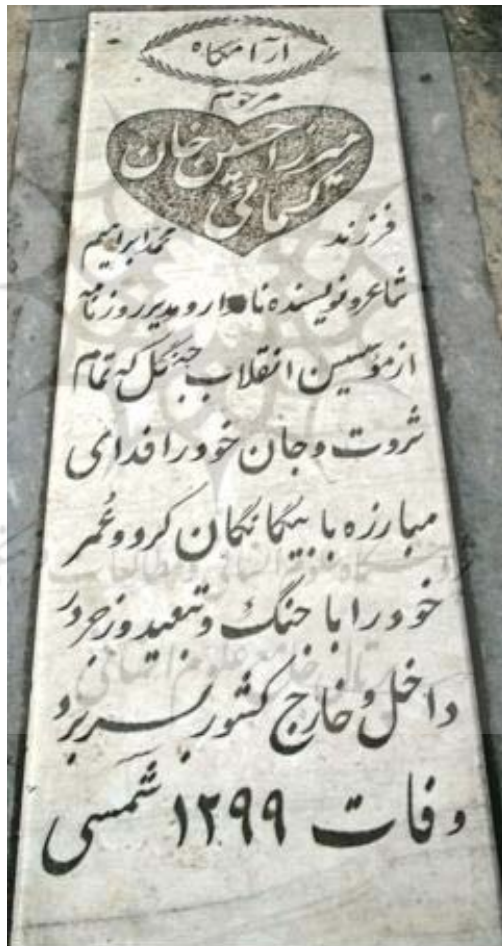 آرامگاه
مرحوم
میرزا حسین خان
کسمائی
فرزند محمد ابراهیم
شاعر و نویسنده نامدار و مدیر روزنامه
از مؤسسین انقلاب جنگل که تمام
ثروت و جان خود را فدای
مبارزه با بیگانگان کرد و عُمر
خود را با جنگ و تبعید و زجر در
داخل و خارج کشور بسر برد
وفات ۱۲۹۹ شمسی